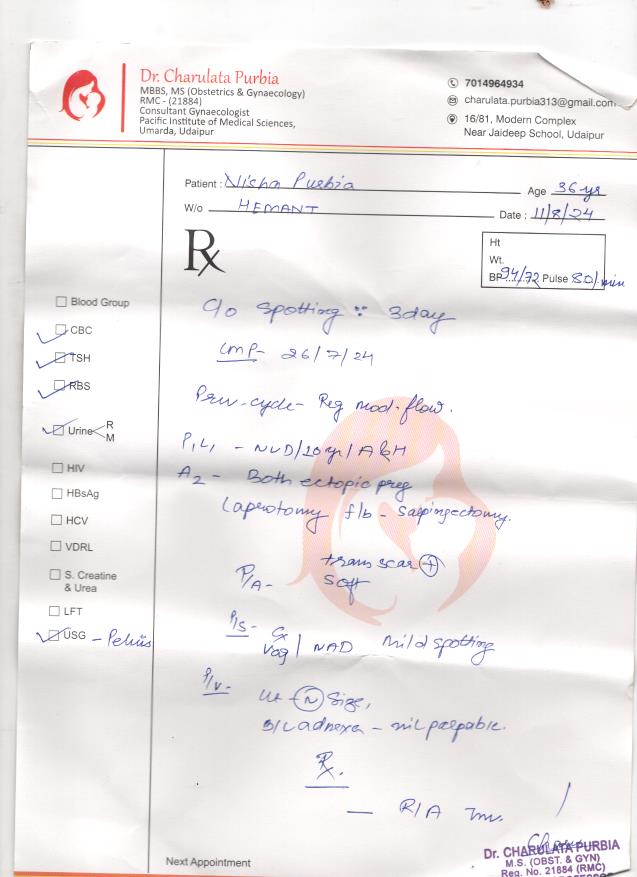 Dr. Charulata Purbia
MBBS, MS (Obstetrics & Gynaecology)
RMC - (21884)
Consultant Gynaecologist
Pacific Institute of Medical Sciences,
Umarda, Udaipur
7014964934
charulata.purbia313@gmail.com
16/81, Modern Complex
Near Jaideep School, Udaipur
Patient : Nisha Purbia Age 36 yr
W/o HEMANT Date : 11/8/24
Rx
Ht
Wt.
BP 94/72 Pulse 80/min
Blood Group
CBC
TSH
RBS
Urine R
M
HIV
HBsAg
HCV
VDRL
S. Creatine
& Urea
LFT
USG - Pelvis
C/o Spotting 3day
LMP- 26/7/24
Prev-cycle- Reg mod. flow.
P1L1 - NVD/20yr/A&H
A2 - Both ectopic preg
Laperotomy f/b - Salpingectomy.
P/A- trans scar +
Soft
P/S- Cx
Vag / NAD Mild spotting
P/V- Ut - N Size,
B/L adnexa - nil palpable.
Rx.
— R/A Inv.
Next Appointment
Dr. CHARULATA PURBIA
M.S. (OBST. & GYN)
Reg. No. 21884 (RMC)